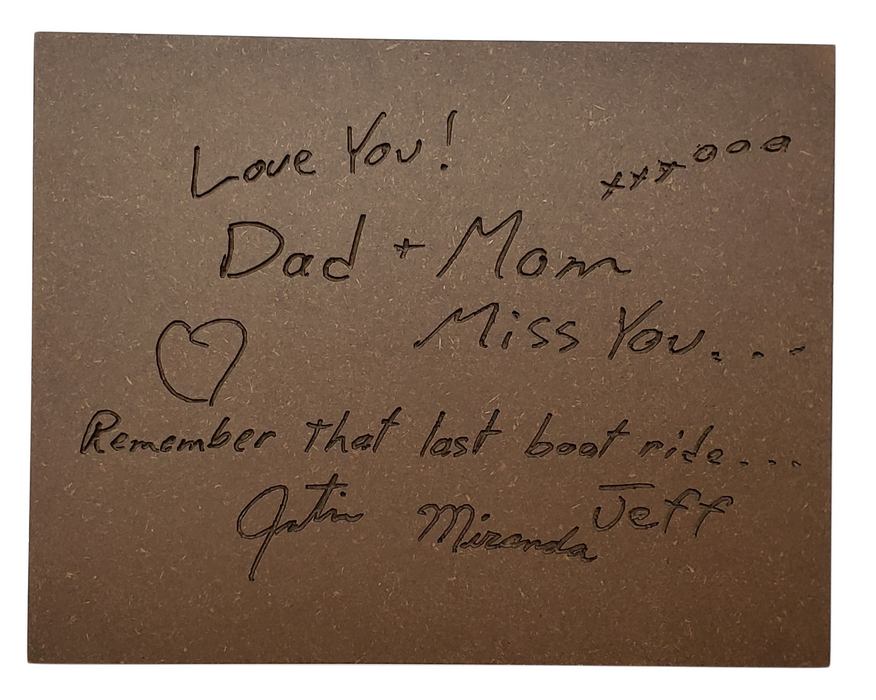 Love You!
+++ooo
Dad + Mom
Miss You...
Remember that last boat ride...
Justin Miranda Jeff